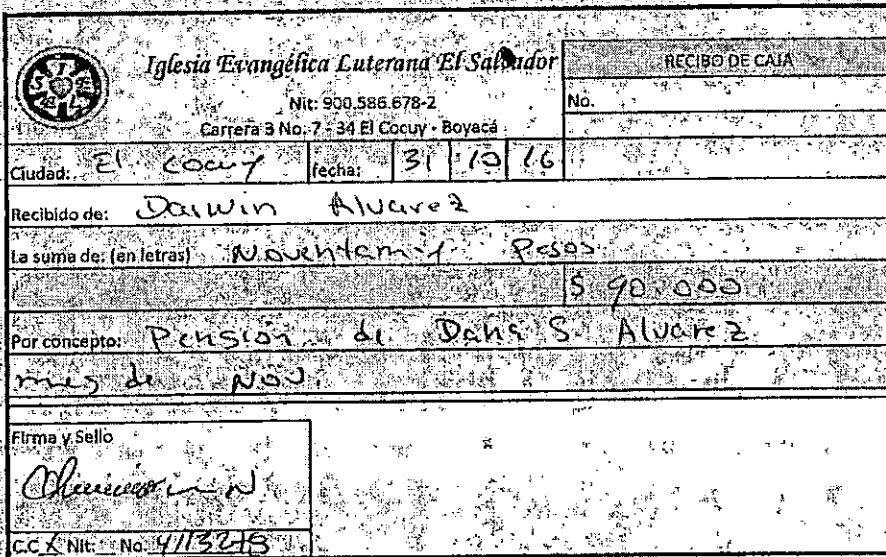 Iglesia Evangélica Luterana El Salvador
RECIBO DE CAJA
Nit: 900.586.678-2
No.
Carrera 3 No. 7 - 34 El Cocuy - Boyacá
Ciudad: El Cocuy fecha: 31 10 16
Recibido de: Darwin Alvarez
La suma de: (en letras) Noventa mil Pesos
$ 90.000
Por concepto: Pensión de Dana S. Alvarez
mes de Nov.
Firma y Sello
C.C X Nit: No.